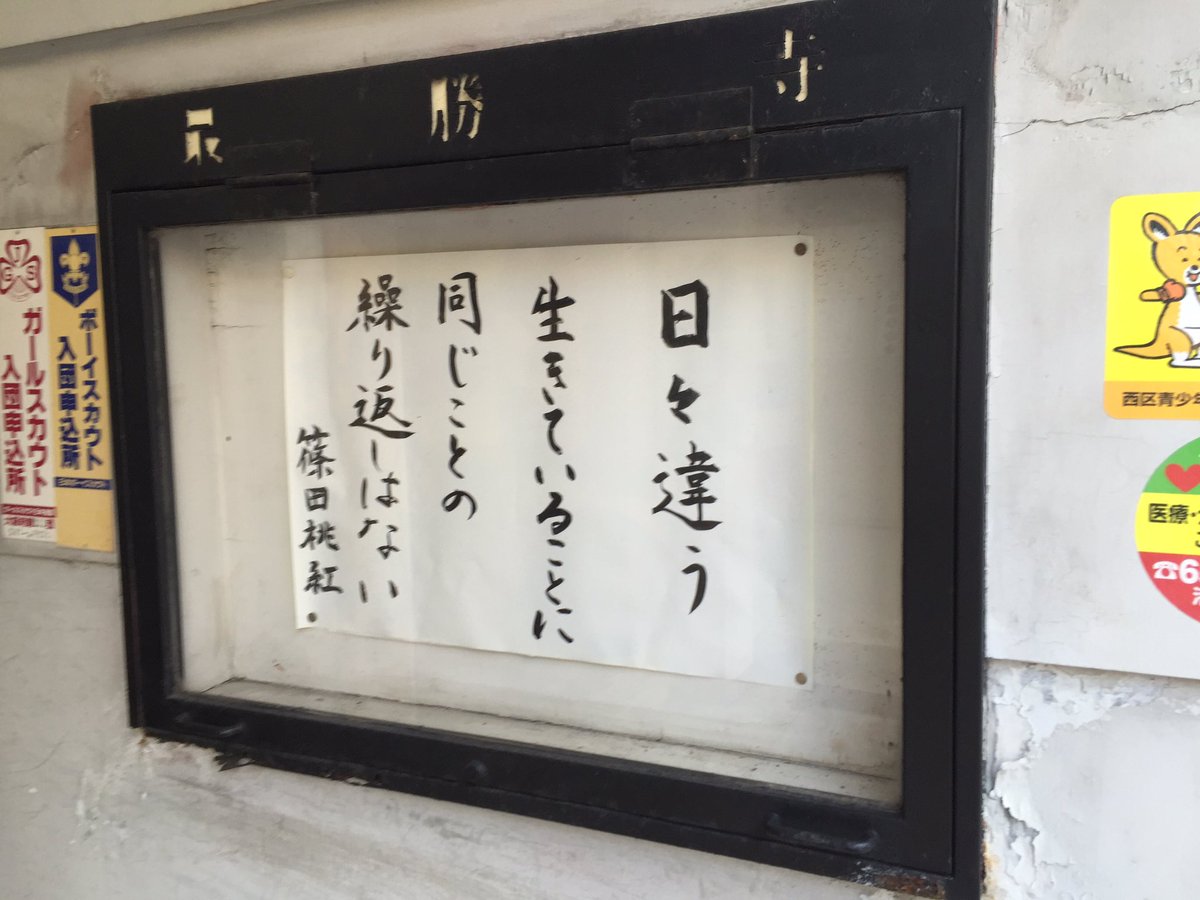 最勝寺
日々違う
生きていることに
同じことの
繰り返しはない
篠田桃紅
ボーイスカウト
入団申込所
ガールスカウト
入団申込所
西区青少年
医療・
☎6